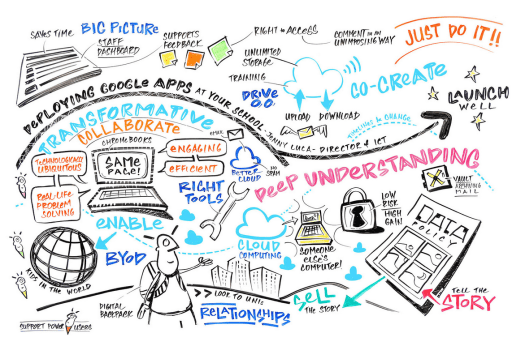 SAVES TIME
BIG PICTURE
STAFF
DASHBOARD
SUPPORTS
FEEDBACK
RIGHT to ACCESS
COMMENT in an
UNIMPOSING WAY
JUST DO IT!!
UNLIMITED
STORAGE
TRAINING
DRIVE
CO-CREATE
UPLOAD DOWNLOAD
LAUNCH
WELL
DEPLOYING GOOGLE APPS AT YOUR SCHOOL - JENNY LUCA - DIRECTOR of ICT
TIMELINE to CHANGE
TRANSFORMATIVE
COLLABORATE
CHROMEBOOKS
TECHNOLOGICALLY
UBIQUITOUS
SAME
PAGE!
ENGAGING
EFFICIENT
EMAIL
BETTER
CLOUD
NO
SPAM
REAL-LIFE
PROBLEM
SOLVING
RIGHT
TOOLS
DEEP UNDERSTANDING
VAULT
ARCHIVING
MAIL
LOW
RISK
HIGH
GAIN
DATA
POLICY
ENABLE
BYOD
CLOUD
COMPUTING
SOMEONE
ELSE'S
COMPUTER!
KIDS IN THE WORLD
DIGITAL
BACKPACK
>> LOOK TO UNIS
RELATIONSHIPS
SELL
THE STORY
TELL THE
STORY
SUPPORT POWER USERS